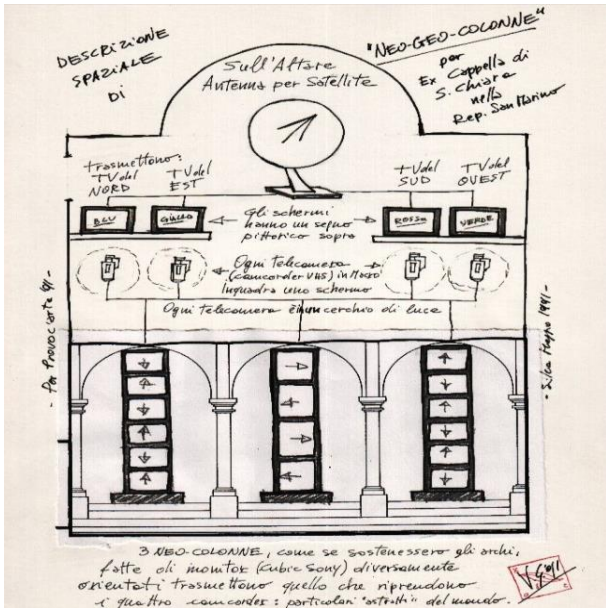 DESCRIZIONE
SPAZIALE
DI
"NEO-GEO-COLONNE"
per
Ex Cappella di
S. Chiara
nella
Rep. San Marino
Sull'Altare
Antenna per Satellite
trasmettono:
TV del
NORD
TV del
EST
TV del
SUD
TV del
OVEST
BLU
GIALLO
ROSSO
VERDE
Gli schermi
hanno un segno
pittorico sopra
Ogni telecamera
(camcorder VHS) in Macro
Inquadra uno schermo
Ogni telecamera è in un cerchio di luce
- Per Provocarte 91 -
1991 -
3 NEO-COLONNE, come se sostenessero gli archi,
fatte di monitor (Cubic Sony) diversamente
orientati trasmettono quello che riprendono
i quattro camcorder: particolari "astratti" del mondo.